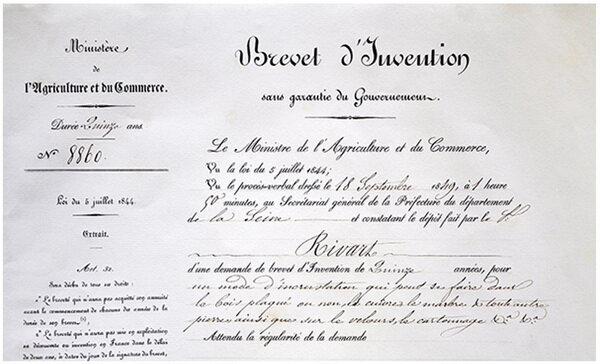 Ministère
de
l'Agriculture et du Commerce.
Durée Quinze ans
N° 8860.
Loi du 5 juillet 1844.
Extrait.
Art. 32.
Sera déchu de tous ses droits :
1° Le breveté qui n'aura pas acquitté son annuité
avant le commencement de chacune des années de la
durée de son brevet ;
2° Le breveté qui n'aura pas mis en exploitation
sa découverte ou invention en France dans le délai
de deux ans, à dater du jour de la signature du brevet,
Brevet d'Invention
sans garantie du Gouvernement.
Le Ministre de l'Agriculture et du Commerce,
Vu la loi du 5 juillet 1844;
Vu le procès-verbal dressé le 18 Septembre 1849, à 1 heure
50 minutes, au Secrétariat général de la Préfecture du département
de la Seine et constatant le dépôt fait par le S.
Rivart
d'une demande de brevet d'Invention de Quinze années, pour
un mode d'incrustation qui peut se faire dans
le bois plaqué ou non, et encore le marbre de toute autre
pierre ainsi que sur le velours, le cartonnage &a. &a.
Attendu la régularité de la demande